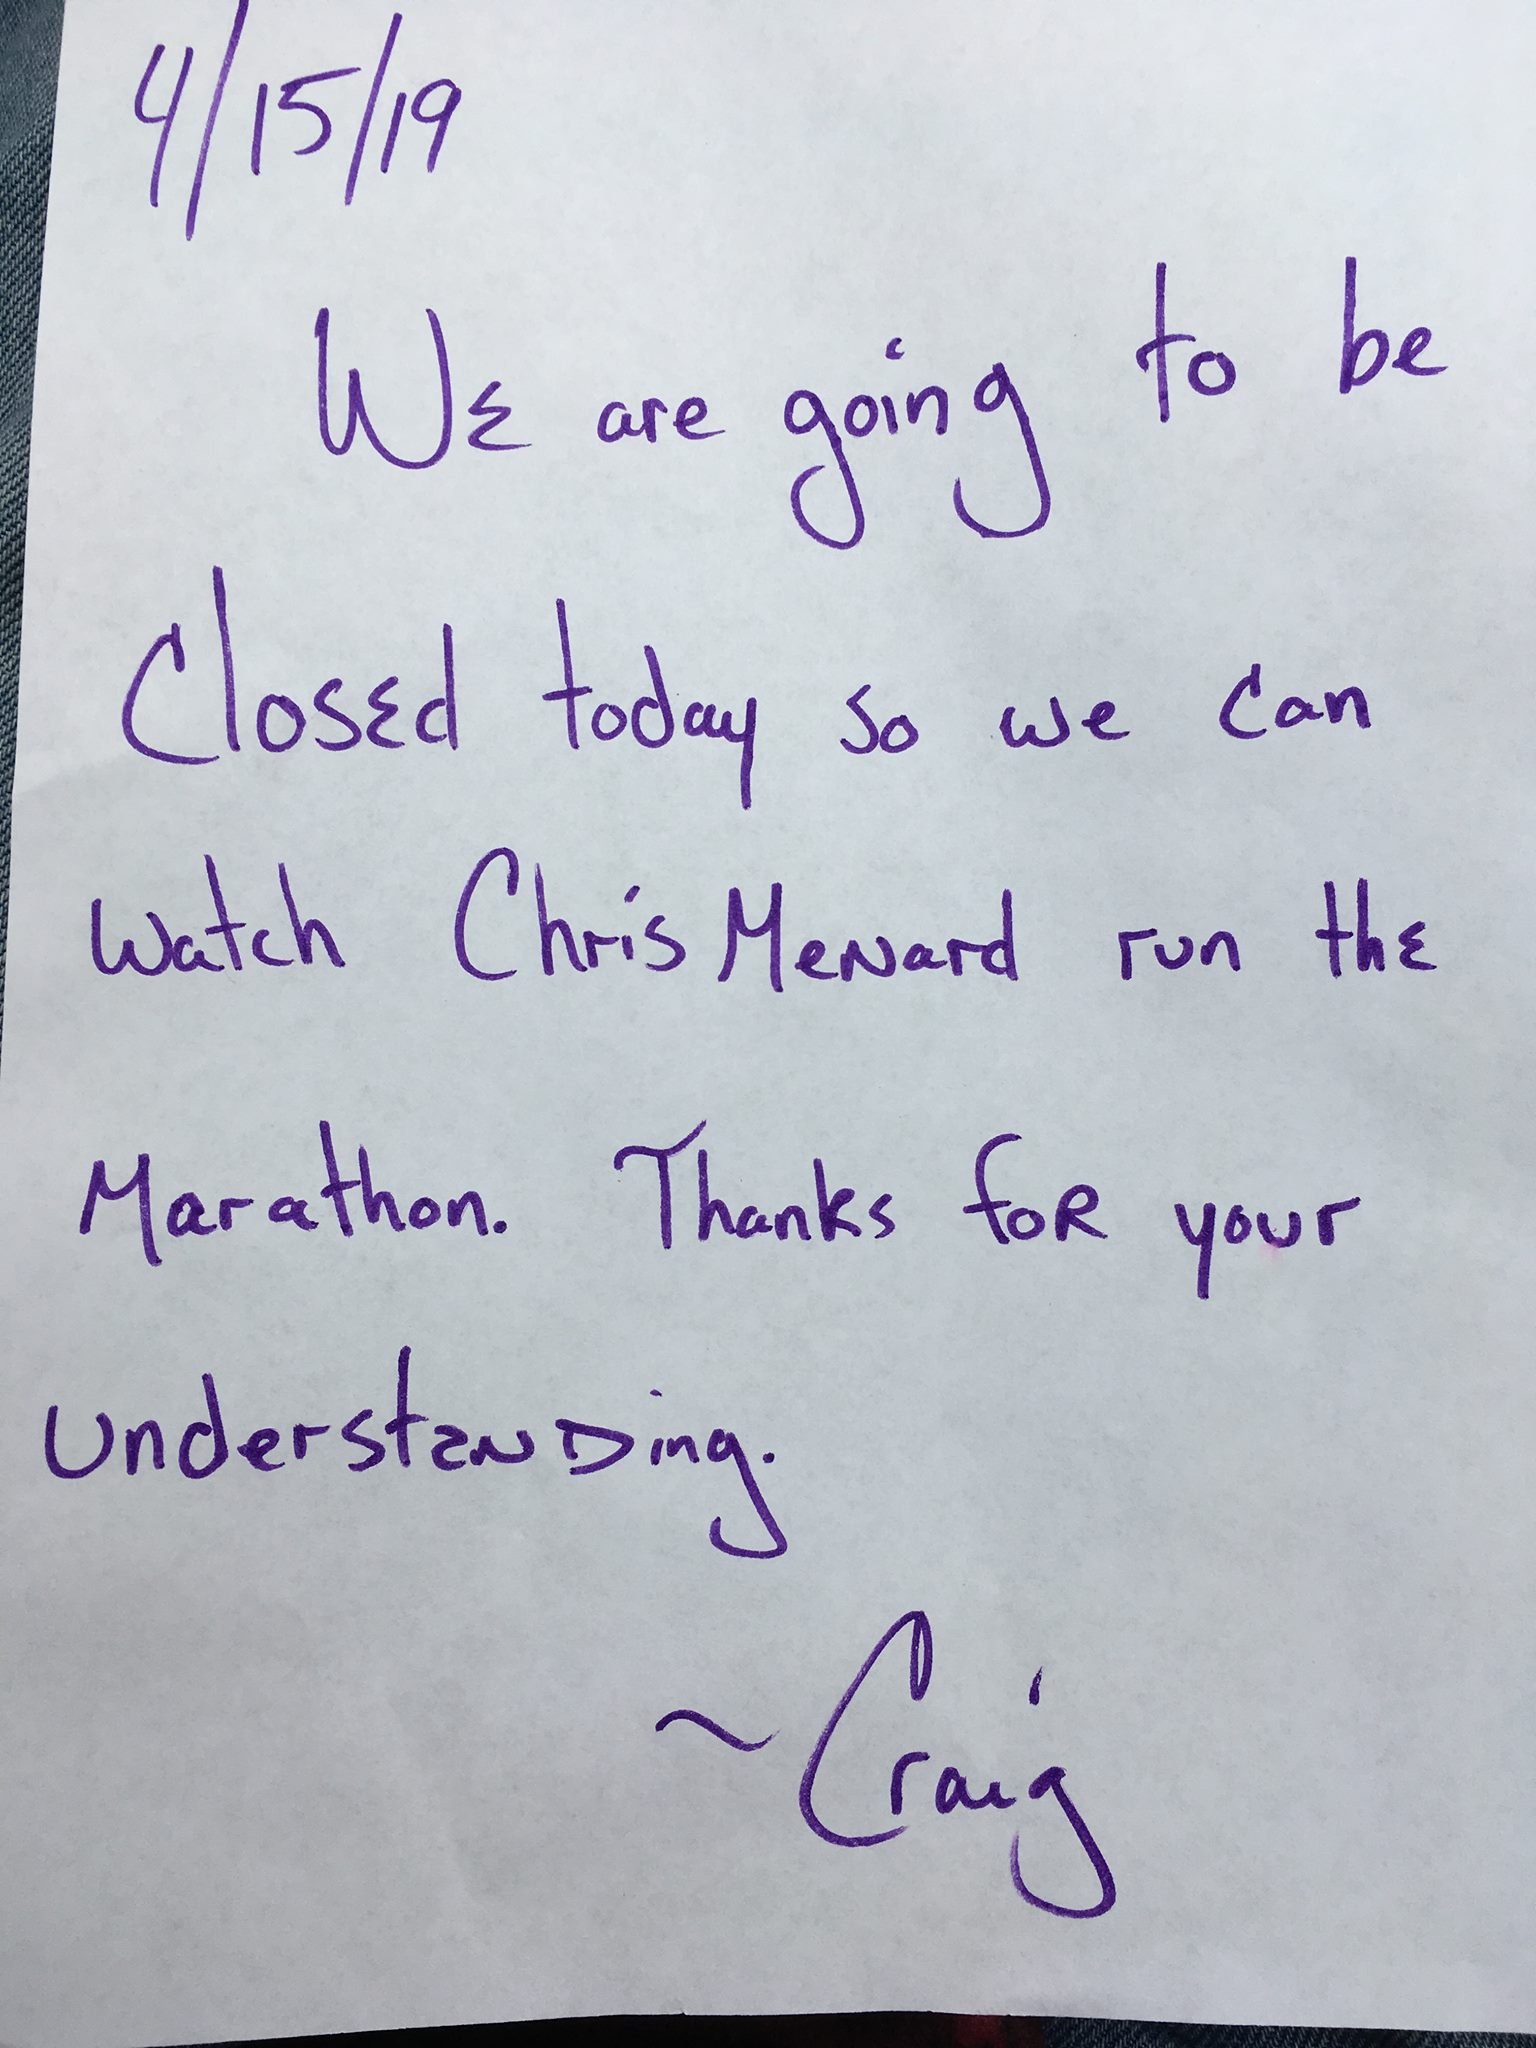 4/15/19
We are going to be
Closed today so we can
watch Chris Menard run the
Marathon. Thanks for your
understanding.
~Craig